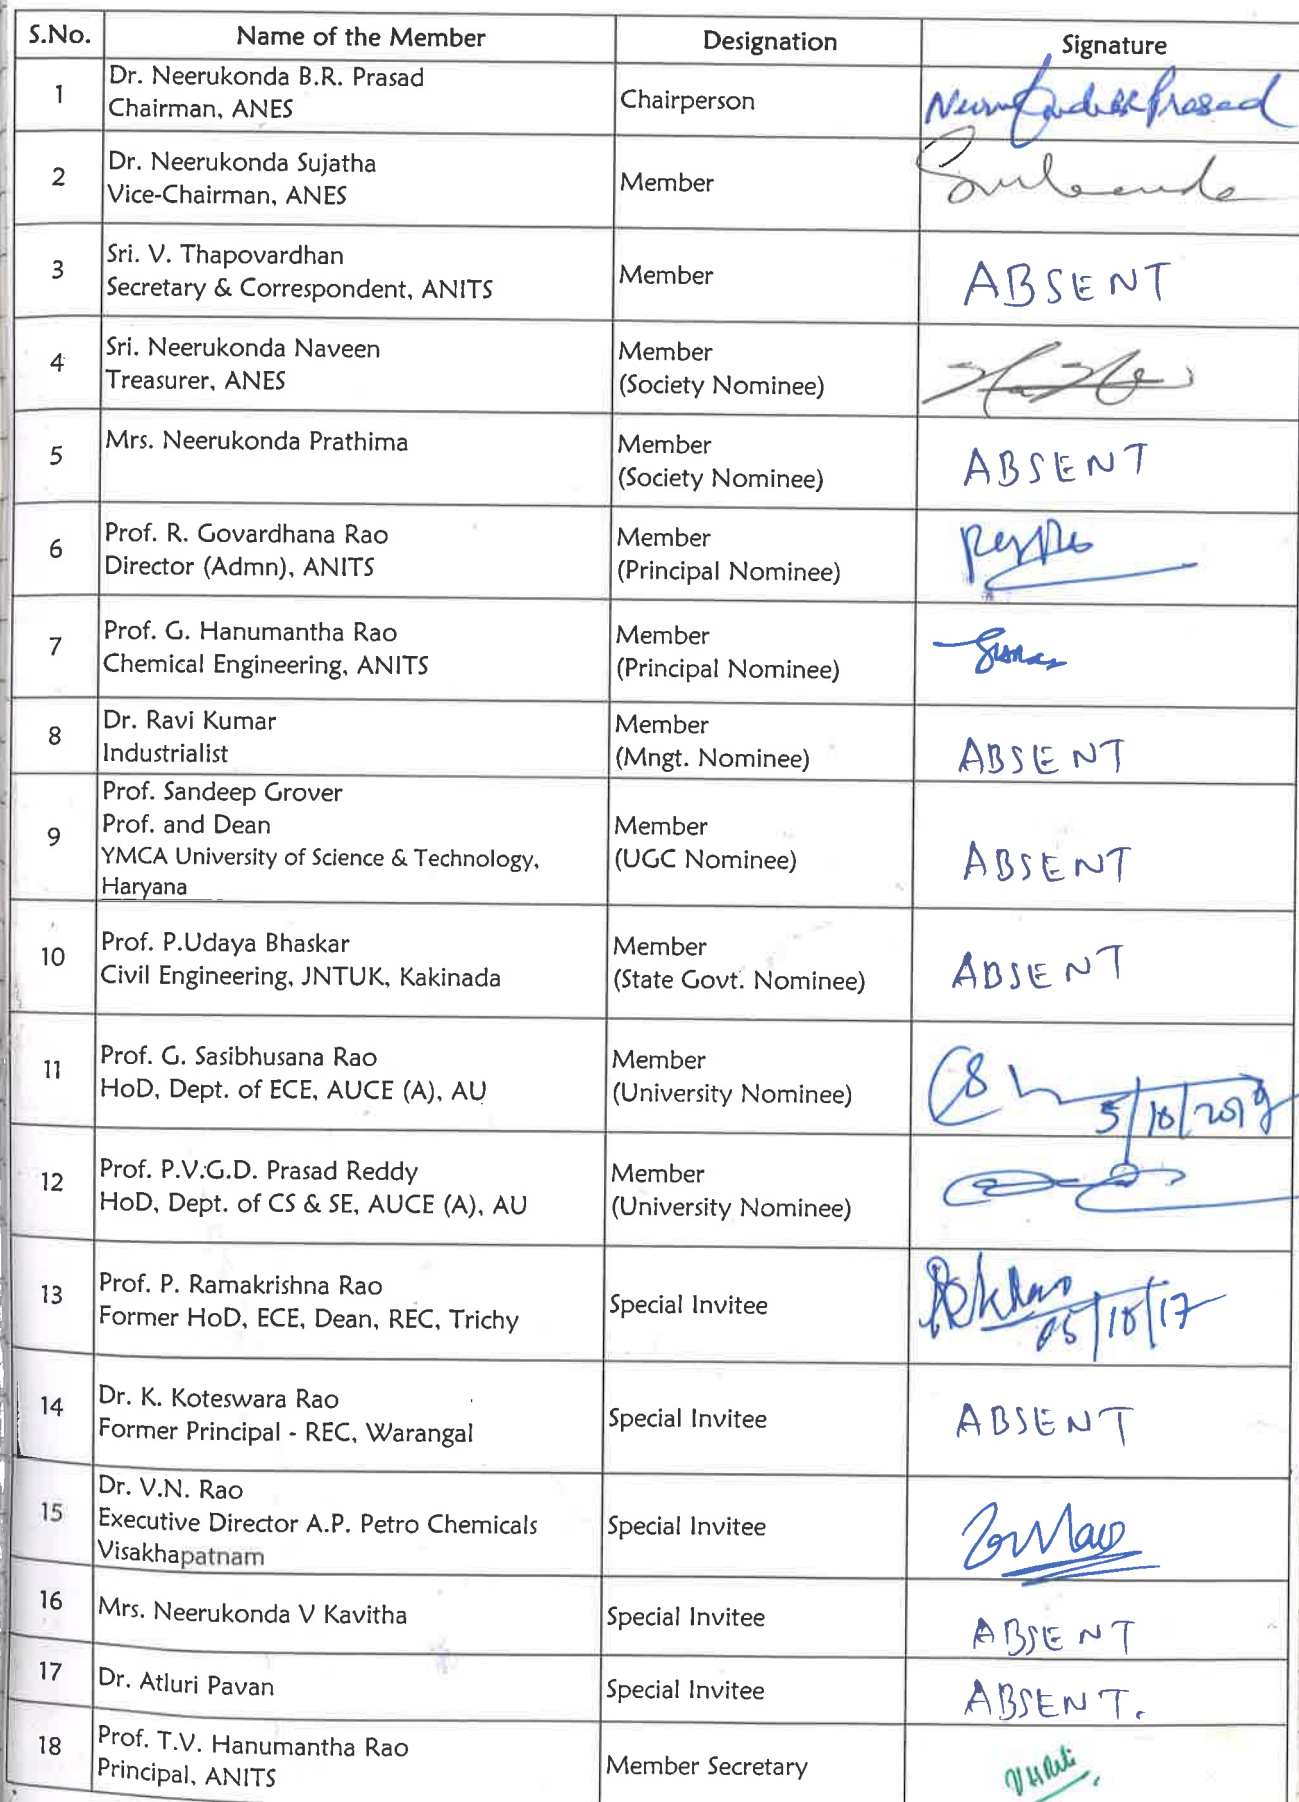 S.No. Name of the Member Designation Signature
1 Dr. Neerukonda B.R. Prasad
Chairman, ANES Chairperson Prasad
2 Dr. Neerukonda Sujatha
Vice-Chairman, ANES Member
3 Sri. V. Thapovardhan
Secretary & Correspondent, ANITS Member ABSENT
4 Sri. Neerukonda Naveen
Treasurer, ANES
Member
(Society Nominee)
5 Mrs. Neerukonda Prathima
Member
(Society Nominee) ABSENT
6 Prof. R. Govardhana Rao
Director (Admn), ANITS
Member
(Principal Nominee)
7 Prof. G. Hanumantha Rao
Chemical Engineering, ANITS
Member
(Principal Nominee)
8 Dr. Ravi Kumar
Industrialist
Member
(Mngt. Nominee) ABSENT
9 Prof. Sandeep Grover
Prof. and Dean
YMCA University of Science & Technology,
Haryana
Member
(UGC Nominee) ABSENT
10 Prof. P.Udaya Bhaskar
Civil Engineering, JNTUK, Kakinada
Member
(State Govt. Nominee) ABSENT
11 Prof. G. Sasibhusana Rao
HoD, Dept. of ECE, AUCE (A), AU
Member
(University Nominee)
12 Prof. P.V.G.D. Prasad Reddy
HoD, Dept. of CS & SE, AUCE (A), AU
Member
(University Nominee)
13 Prof. P. Ramakrishna Rao
Former HoD, ECE, Dean, REC, Trichy
Special Invitee
05/10/17
14 Dr. K. Koteswara Rao
Former Principal - REC, Warangal
Special Invitee ABSENT
15 Dr. V.N. Rao
Executive Director A.P. Petro Chemicals
Visakhapatnam
Special Invitee
16 Mrs. Neerukonda V Kavitha Special Invitee ABSENT
17 Dr. Atluri Pavan Special Invitee ABSENT.
18 Prof. T.V. Hanumantha Rao
Principal, ANITS
Member Secretary